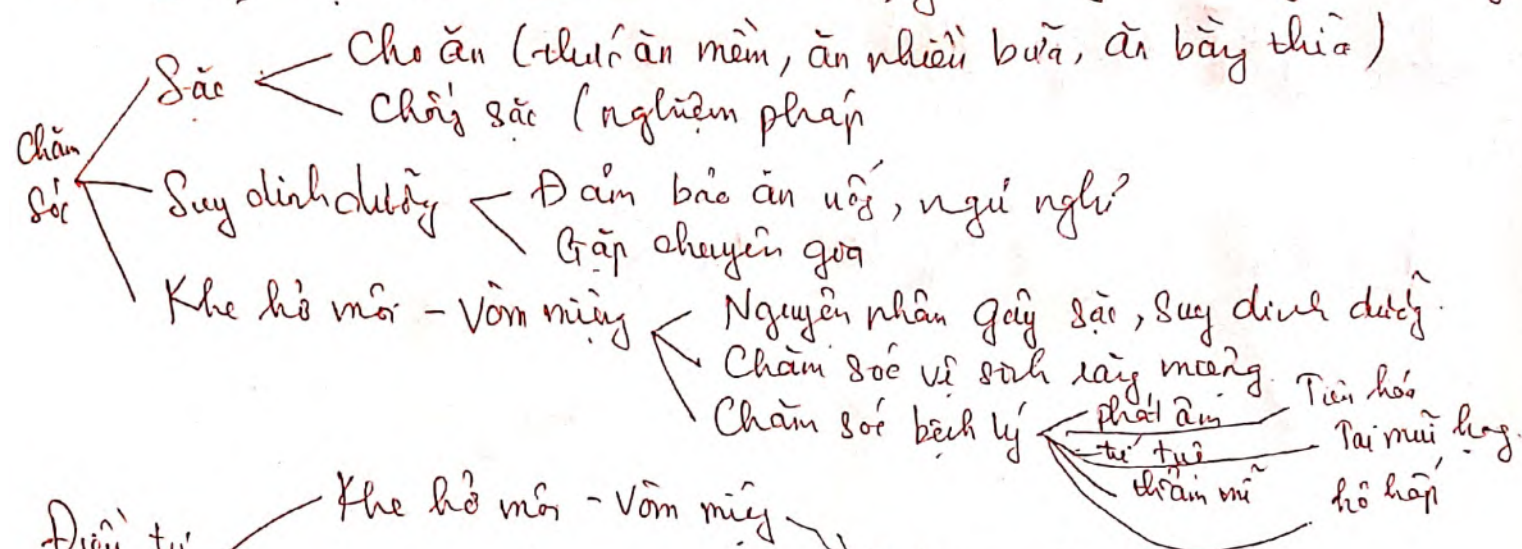 Sặc
Cho ăn (thức ăn mềm, ăn nhiều bữa, ăn bằng thìa)
Chống sặc (nghiệm pháp
Chăm
Sóc
Suy dinh dưỡng
Đảm bảo ăn uống, ngủ nghỉ
Gặp chuyên gia
Khe hở môi - Vòm miệng
Nguyên nhân gây sặc, Suy dinh dưỡng.
Chăm sóc vệ sinh răng miệng.
Chăm sóc bệnh lý
phát âm
Tiêu hóa
trí tuệ
Tai mũi họng.
thẩm mĩ
hô hấp
Khe hở môi - Vòm miệng
Điều trị